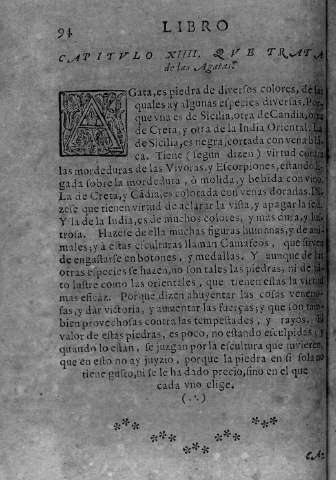 91 LIBRO
CAPITVLO XIIII. QVE TRATA
de las Agatas.
AGata, es piedra de diversos colores, de las
quales ay algunas especies diversas, Por
que vna es de Sicilia, otra de Candia, otra
de Creta, y otra de la India Oriental. La
de Sicilia, es negra, cortada con vena blā
ca. Tiene (segun dizen) virtud contra
las mordeduras de las Vivoras, y Escorpiones, estando li-
gada sobre la mordedura, ó molida, y bebida con vino.
La de Creta, y Cādia, es colorada con venas doradas. Di-
zese que tienen virtud de aclarar la vista, y apagar la sed.
Y la de la India, es de muchos colores, y mas dura, y lus-
trosa. Hazese de ella muchas figuras humanas, y de ani-
males, y á estas esculturas llaman Camafeos, que sirven
de engastarse en botones, y medallas. Y aunque de las
otras especies se hazen, no son tales las piedras, ni de tā-
to lustre como las orientales, que tienen estas la virtud
mas eficaz. Porque dizen ahuyentar las cosas veneno-
sas, y dar victoria, y aumentar las fuerças, y que son tam-
bien provechosas contra las tempestades, y rayos. El
valor de estas piedras, es poco, no estando esculpidas, y
quando lo estan, se juzgan por la escultura que tuvieren,
que en esto no ay juyzio, porque la piedra en si sola no
tiene gusto, ni se le ha dado precio, sino en el que
cada vno elige.
(.·.)
CA-